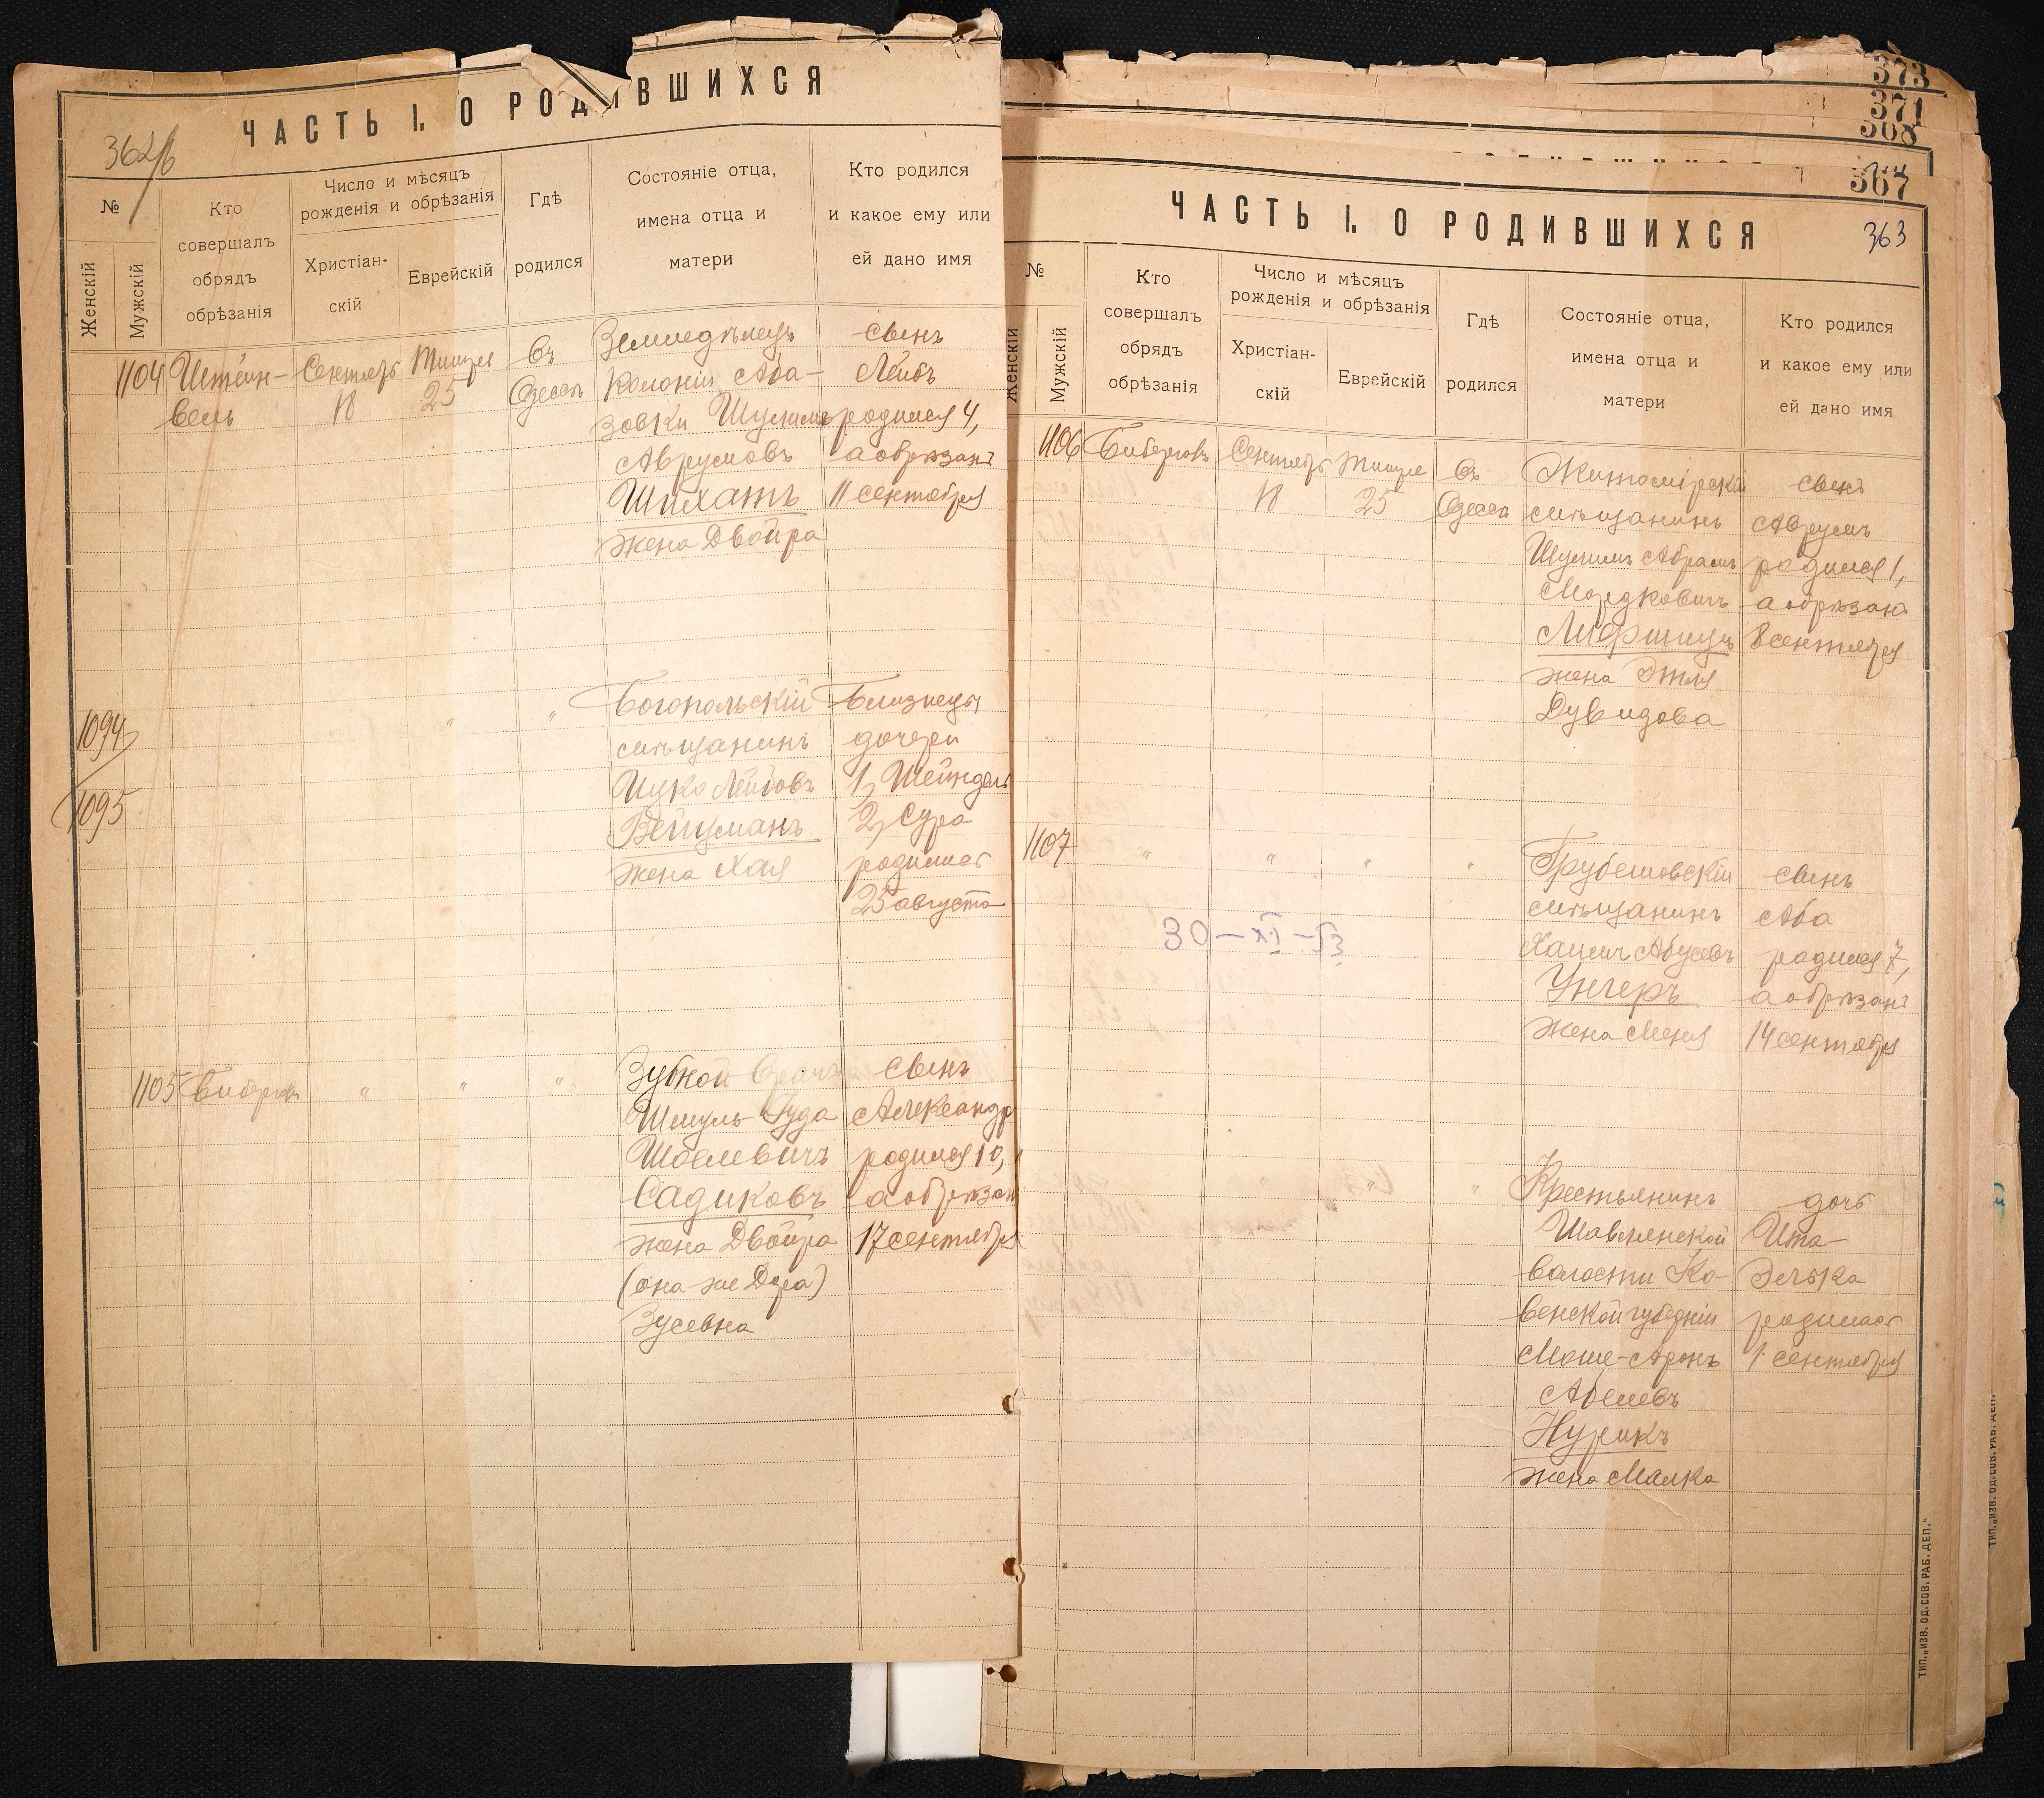 ЧАСТЬ I. О РОДИВШИХСЯ
362/б
№
Женскій
Мужскій
Кто
совершалъ
обрядъ
обрѣзанія
Число и мѣсяцъ
рожденія и обрѣзанія
Христіан-
скій
Еврейскій
Гдѣ
родился
Состояніе отца,
имена отца и
матери
Кто родился
и какое ему или
ей дано имя
1104
Штейн-
вель
Сентябрь
18
Тишре
25
Въ
Одессѣ
Земледѣлецъ
Колоніи Аба-
зовки Шулимъ
Аврумовъ
Шихатъ
жена Двойра
Сынъ
Лейбъ
родился 4,
а обрѣзанъ
11 сентября
1094
1095
"
"
Богопольскій
мѣщанинъ
Ицко Лейбовъ
Вейцманъ
жена Хая
Близнецы
дочери
1, Шейндель
2, Сура
родились
25 августа
1105
Биберговъ
"
"
"
Зубной врачъ
Шмуль-Іуда
Шбелевичъ
Садиковъ
жена Двойра
(она же Дора)
Зусевна
Сынъ
Александр
родился 10,
а обрѣзан
17 сентября
373
371
368
367
363
ЧАСТЬ I. О РОДИВШИХСЯ
№
Женскій
Мужскій
Кто
совершалъ
обрядъ
обрѣзанія
Число и мѣсяцъ
рожденія и обрѣзанія
Христіан-
скій
Еврейскій
Гдѣ
родился
Состояніе отца,
имена отца и
матери
Кто родился
и какое ему или
ей дано имя
1106
Биберговъ
Сентябрь
18
Тишре
25
Въ
Одессѣ
Житомірскій
мѣщанинъ
Шулимъ Абрамъ
Мордковичъ
Лифшицъ
жена Этля
Дувидова
Сынъ
Аврумъ
родился 1,
а обрѣзанъ
8 сентября
1107
"
"
"
"
Грубешовскій
мѣщанинъ
Хаимъ Абусевъ
Унгеръ
жена Меня
Сынъ
Аба
родился 7,
а обрѣзанъ
14 сентября
30-XI-53
"
"
"
Крестьянинъ
Шавлянской
волости Ко-
венской губерніи
Моше-Аронъ
Абелевъ
Нурикъ
жена Малка
дочь
Ита-
Элька
родилась
1 сентября
ТИП. „ИЗВ. ОД. СОВ. РАБ. ДЕП."
ТИП. „ИЗВ. ОД. СОВ. РАБ. ДЕП."